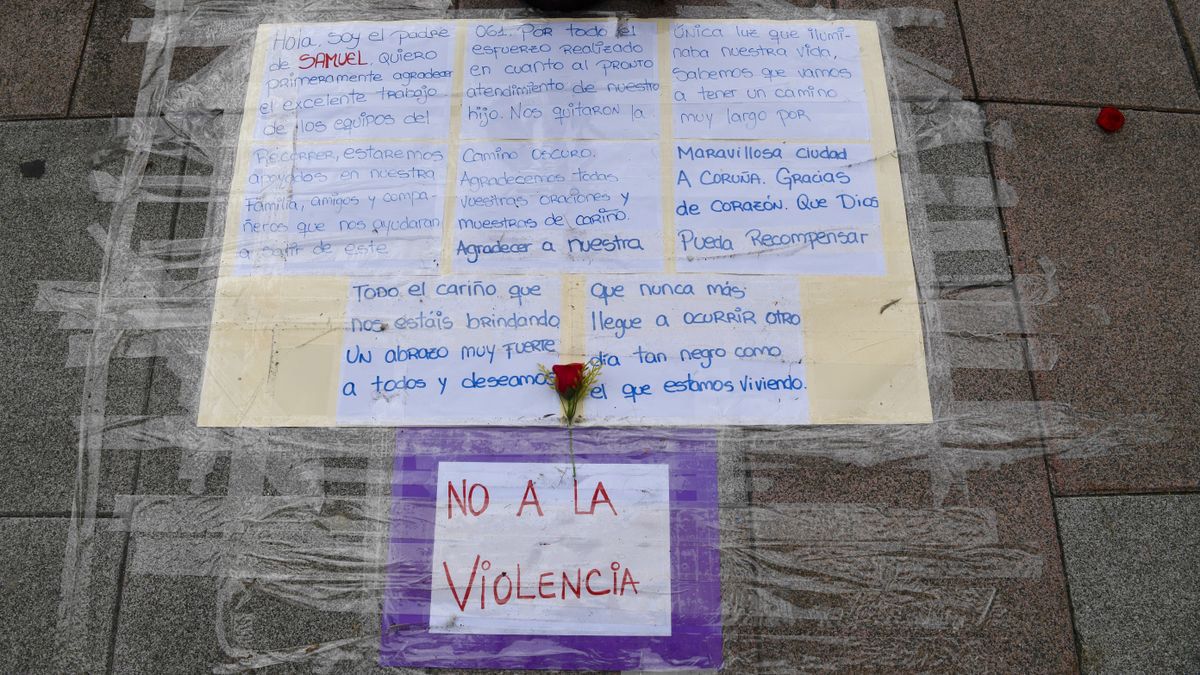 Hola, soy el padre
de SAMUEL. QUIERO
primeramente agradecer
el excelente trabajo
de los equipos del
061. POR todo el
esfuerzo realizado
en cuanto al PRONTO
atendimiento de nuestro
hijo. Nos quitaron la
ÚNICA luz que ilumi-
naba nuestra vida,
Sabemos que vamos
a tener un camino
muy largo por
Recorrer, estaremos
apoyados en nuestra
Familia, amigos y compa-
ñeros que nos ayudaran
a salir de este
Camino oscuro.
Agradecemos todas
vuestras oraciones y
muestras de cariño.
Agradecer a nuestra
Maravillosa ciudad
A CORUÑA. Gracias
de CORAZÓN. Que Dios
Pueda Recompensar
TODO el cariño que
nos estáis brindando
UN abrazo muy fuerte
a todos y deseamos
Que nunca más
llegue a OCURRIR OTRO
día tan negro como
el que estamos viviendo.
NO A LA
VIOLENCIA